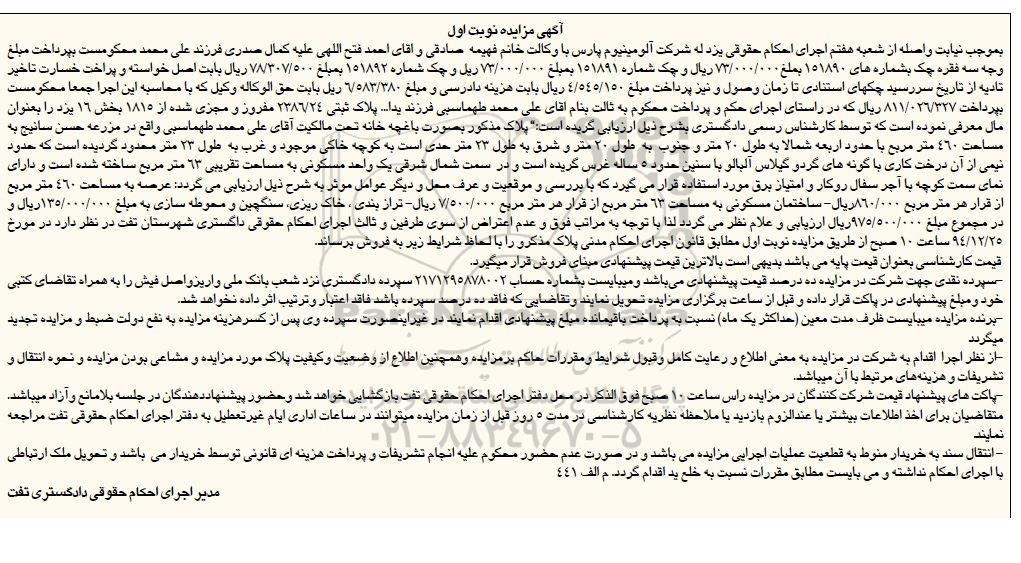 آگهی مزایده نوبت اول
بموجب نیابت واصله از شعبه هفتم اجرای احکام حقوقی یزد له شرکت آلومینیوم پارس با وکالت خانم فهیمه صادقی و اقای احمد فتح اللهی علیه کمال صدری فرزند علی محمد محکومست بپرداخت مبلغ
وجه سه فقره چک بشماره های ۱۵۱۸۹۰ بملغ ۷۳/۰۰۰/۰۰۰ ریال و چک شماره ۱۵۱۸۹۱ بمبلغ ۷۳/۰۰۰/۰۰۰ ریل و چک شماره ۱۵۱۸۹۲ بمبلغ ۷۸/۳۰۷/۵۰۰ ریال بابت اصل خواسته و پراخت خسارت تاخیر
تادیه از تاریخ سررسید چکهای استنادی تا زمان وصول و نیز پرداخت مبلغ ۴/۵۴۵/۱۵۰ ریال بابت هزینه دادرسی و مبلغ ۶/۵۸۳/۳۸۰ ریل بابت حق الوکاله وکیل که با محاسبه این اجرا جمعا محکومست
بپرداخت ۸۱۱/۰۲۶/۳۲۷ ریال که در راستای اجرای حکم و پرداخت محکوم به ثالث بنام اقای علی محمد طهماسبی فرزند یدا... پلاک ثبتی ۲۳۸۶/۲۴ مفروز و مجزی شده از ۱۸۱۵ بخش ۱۶ یزد را بعنوان
مال معرفی نموده است که توسط کارشناس رسمی دادگستری بشرح ذیل ارزیابی گریده است:" پلاک مذکور بصورت باغچه خانه تحت مالکیت آقای علی محمد طهماسبی واقع در مزرعه حسن سانیج به
مساحت ۴۶۰ متر مربع با حدود اربعه شمالا به طول ۲۰ متر و جنوب به طول ۲۰ متر و شرق به طول ۲۳ متر حدی است به کوچه خاکی موجود و غرب به طول ۲۳ متر محدود گردیده است که حدود
نیمی از آن درخت کاری با گونه های گردو گیلاس آلبالو با سنین حدود ۵ ساله غرس گریده است و در سمت شمال شرقی یک واحد مسکونی به مساحت تقریبی ۶۳ متر مربع ساخته شده است و دارای
نمای سمت کوچه با آجر سفال روکار و امتیاز برق مورد استفاده قرار می گیرد که با بررسی و موقعیت و عرف محل و دیگر عوامل موثر به شرح ذیل ارزیابی می گردد: عرصه به مساحت ۴۶۰ متر مربع
از قرار هر متر مربع ۸۶۰/۰۰۰ریال- ساختمان مسکونی به مساحت ۶۳ متر مربع از قرار هر متر مربع ۷/۵۰۰/۰۰۰ ریال- تراز بندی ، خاک ریزی، سنگچین و محوطه سازی به مبلغ ۱۳۵/۰۰۰/۰۰۰ریال و
در مجموع مبلغ ۹۷۵/۵۰۰/۰۰۰ریال ارزیابی و علام نظر می گردد. لذا با توجه به مراتب فوق و عدم اعتراض از سوی طرفین و ثالث اجرای احکام حقوقی داگستری شهرستان تفت در نظر دارد در مورخ
۹۴/۱۲/۲۵ ساعت ۱۰ صبح از طریق مزایده نوبت اول مطابق قانون اجرای احکام مدنی پلاک مذکرو را با لحاظ شرایط زیر به فروش برساند.
قیمت کارشناسی بعنوان قیمت پایه می باشد بدیهی است بالاترین قیمت پیشنهادی مبنای فروش قرار میگیرد.
-سپرده نقدی جهت شرکت در مزایده ده درصد قیمت پیشنهادی می‌باشد ومیبایست بشماره حساب ۲۱۷۱۲۹۵۸۷۸۰۰۲ سپرده دادگستری نزد شعب بانک ملی واریزواصل فیش را به همراه تقاضای کتبی
خود ومبلغ پیشنهادی در پاکت قرار داده و قبل از ساعت برگزاری مزایده تحویل نمایند وتقاضایی که فاقد ده درصد سپرده باشد فاقد اعتبار وترتیب اثر داده نخواهد شد.
-برنده مزایده میبایست ظرف مدت معین (حداکثر یک ماه) نسبت به پرداخت باقیمانده مبلغ پیشنهادی اقدام نمایند در غیراینصورت سپرده وی پس از کسرهزینه مزایده به نفع دولت ضبط و مزایده تجدید
میگردد
-از نظر اجرا اقدام به شرکت در مزایده به معنی اطلاع و رعایت کامل وقبول شرایط ومقررات حاکم برمزایده وهمچنین اطلاع از وضعیت وکیفیت پلاک مورد مزایده و مشاعی بودن مزایده و نحوه انتقال و
تشریفات و هزینه‌های مرتبط با آن میباشد.
-پاکت های پیشنهاد قیمت شرکت کنندگان در مزایده راس ساعت ۱۰ صبح فوق الذکر در محل دفتر اجرای احکام حقوقی تفت بازگشایی خواهد شد وحضور پیشنهاددهندگان در جلسه بلامانع وآزاد میباشد.
متقاضیان برای اخذ اطلاعات بیشتر یا عندالزوم بازدید یا ملاحظه نظریه کارشناسی در مدت ۵ روز قبل از زمان مزایده میتوانند در ساعات اداری ایام غیرتعطیل به دفتر اجرای احکام حقوقی تفت مراجعه
نمایند.
- انتقال سند به خریدار منوط به قطعیت عملیات اجرایی مزایده می باشد و در صورت عدم حضور محکوم علیه انجام تشریفات و پرداخت هزینه ای قانونی توسط خریدار می باشد و تحویل ملک ارتباطی
با اجرای احکام نداشته و می بایست مطابق مقررات نسبت به خلع ید اقدام گردد. م الف ۴۴۱
مدیر اجرای احکام حقوقی دادگستری تفت
ParsNamadData
۰۲۱-۸۸۳۴۹۶۷۰-۵